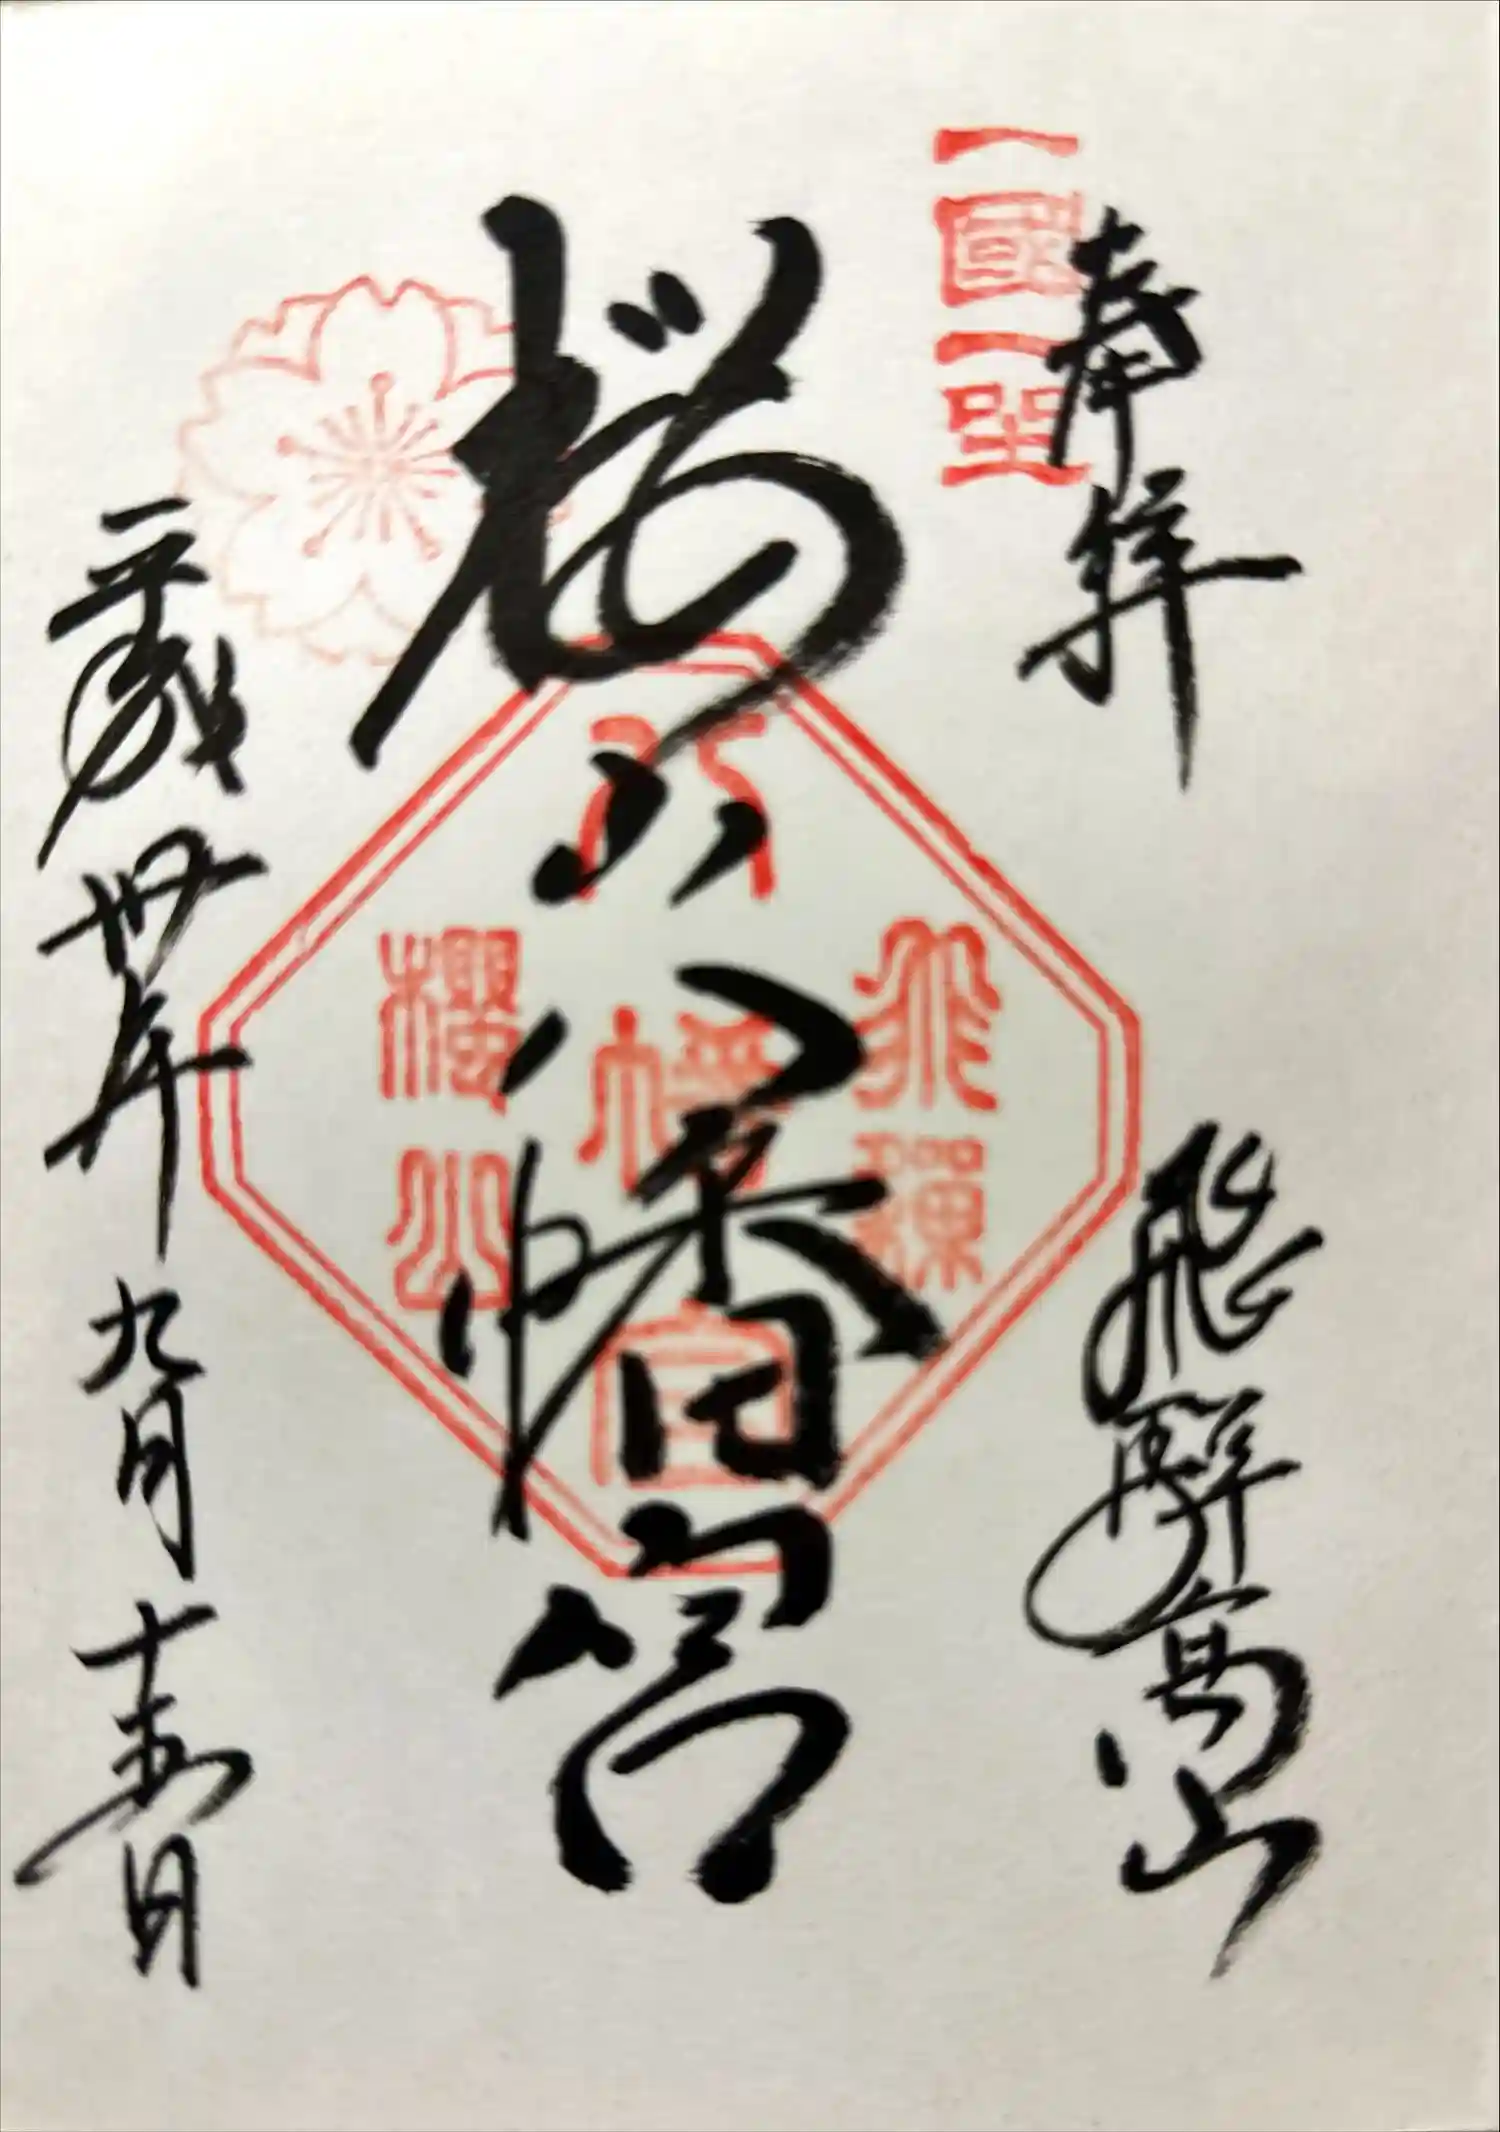 奉拝
飛騨高山
一國一
桜山八幡宮
飛騨
八幡宮
櫻山
平成卅年九月十五日